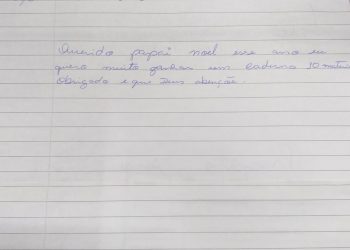 Querido papai noel esse ano eu
quero muito ganhar um caderno 10 matéria
obrigado e que Deus abençõe